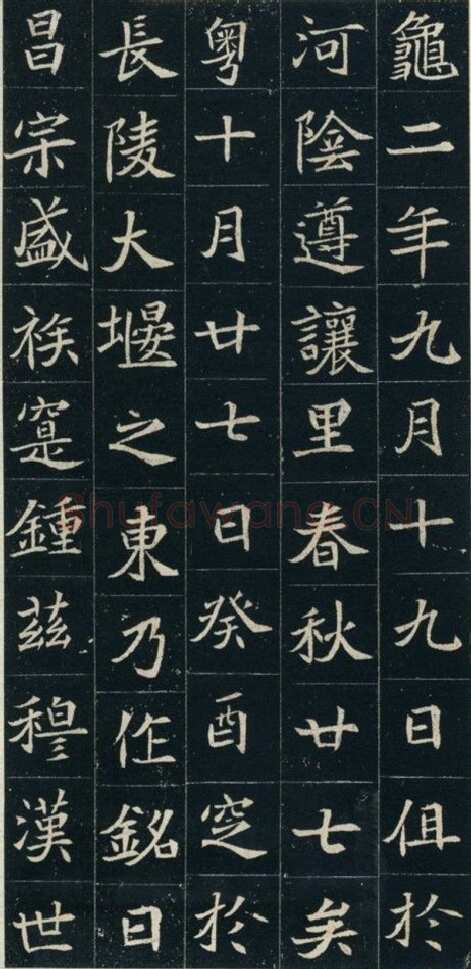 龜二年九月十九日徂於
河陰遵讓里春秋廿七矣
粵十月廿七日癸酉窆於
長陵大堰之東乃作銘曰
昌宗盛族寔鍾茲穆漢世
Shufawang.CN